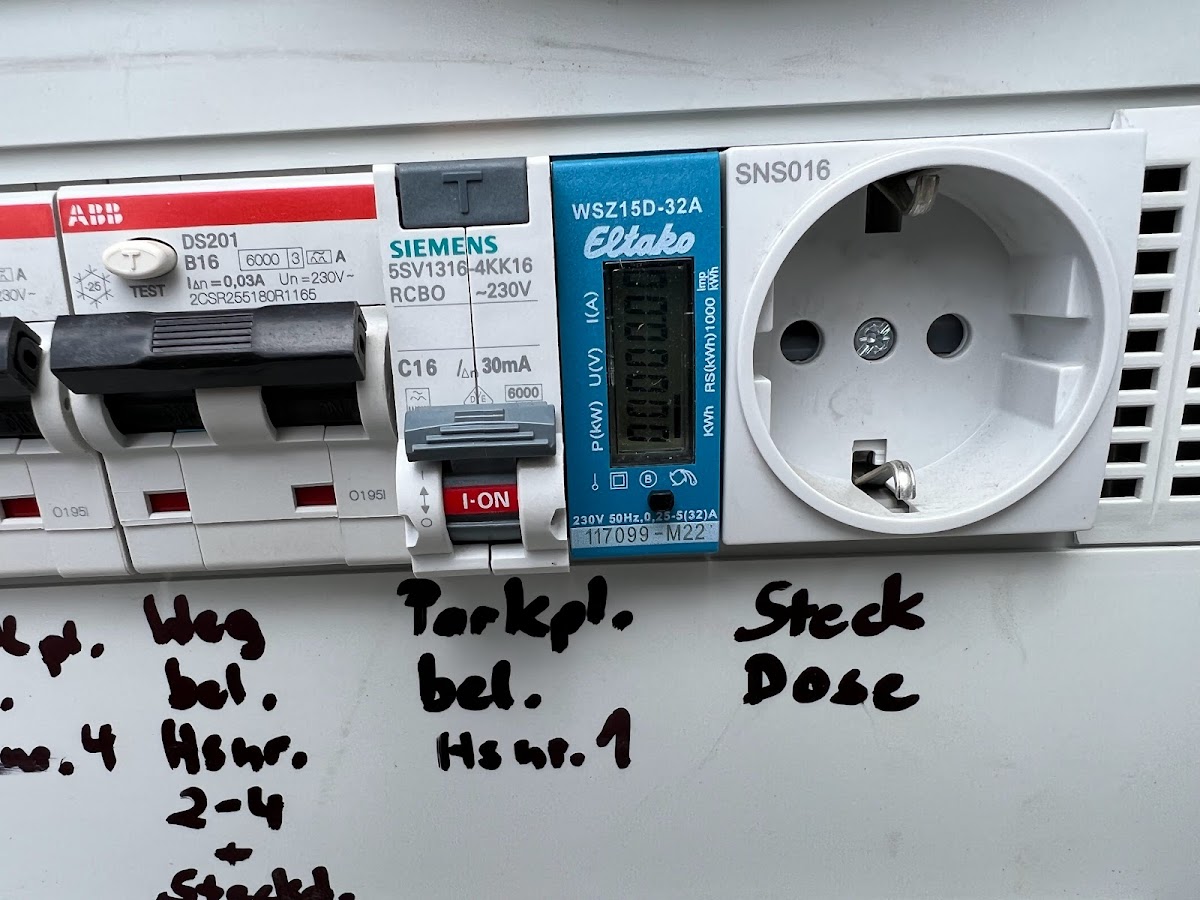 ABB
DS201
B16 6000 3 A
IΔn=0,03A Un=230V~
2CSR255180R1165
-25
T
TEST
A
230V~
O195I
O195I
T
SIEMENS
5SV1316-4KK16
RCBO ~230V
C16 IΔn 30mA
6000
I-ON
O
WSZ15D-32A
Eltako
P(kW) U(V) I(A)
kWh RS(kWh)1000 Imp/kWh
B
230V 50Hz,0,25-5(32)A
117099-M22
SNS016
Weg
bel.
Hsnr.
2-4
+
Steckd.
Parkpl.
bel.
Hsnr. 1
Steck
Dose
4